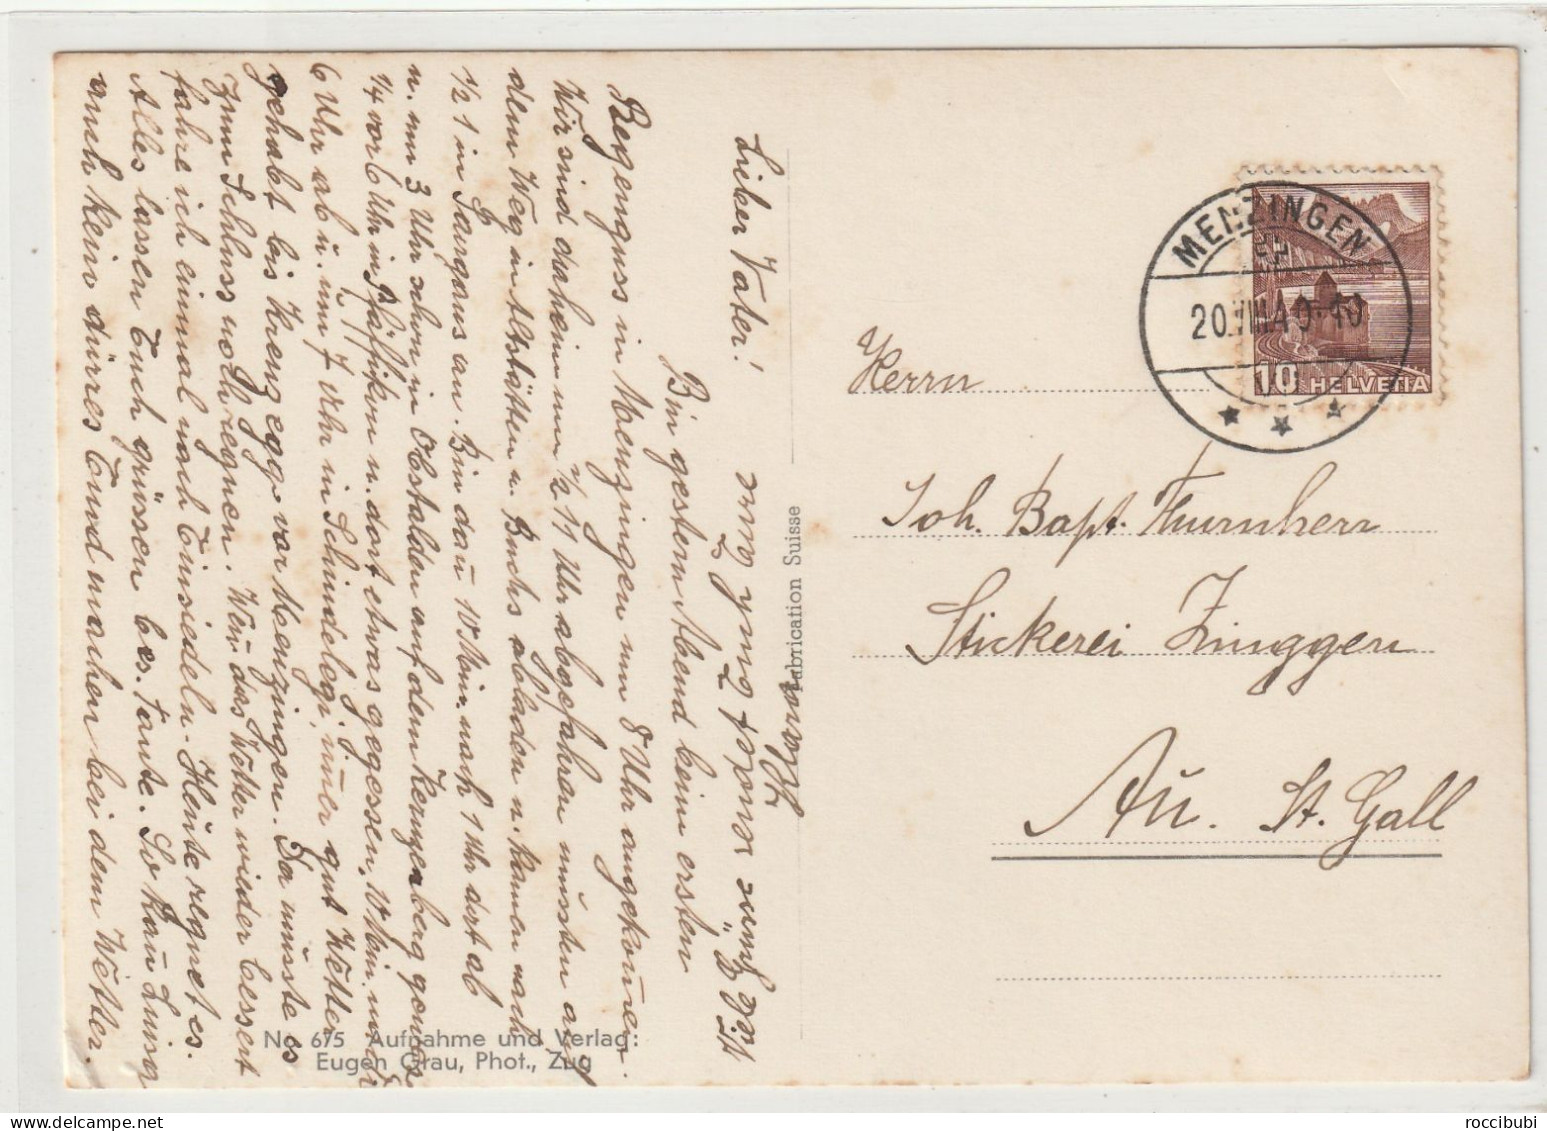 Lieber Vater!
Bin gestern Abend beim ersten
Regenguss in Menzingen um 8 Uhr angekommen.
Wir sind daheim um ½ 11 Uhr abgefahren mussten auf
dem Weg in Altstätten u. Buchs abladen u. kamen nach
½ 1 in Sargans an. Bin dan 10 Min. nach 1 Uhr dort ab
u. um 3 Uhr schon in Obstalden auf dem Kerenzerberg
¼ vor 6 Uhr in Pfäffikon u. dort etwas gegessen, 10 Min. nach
6 Uhr ab u. um 7 Uhr in Schindelegi, immer gut Wetter
gehabt bis kreuzegg vor Menzingen. Da musste es
zum Schluss noch regnen. Wen das Wetter wieder bessert
fahre ich einmal nach Einsiedeln. Heute regnet es.
Alles lassen Euch grüssen bes. Tante. So kan Luisa
auch kein dürres Emd machen bei dem Wetter.
Es grüsst
Fabrication Suisse
No. 675 Aufnahme und Verlag:
Eugen Grau, Phot., Zug
MENZINGEN
20.VIII.40-10
10 HELVETIA
Herrn
Joh. Bapt. Thurnherr
Stickerei Zinggen
Au. St. Gall
roccibubi